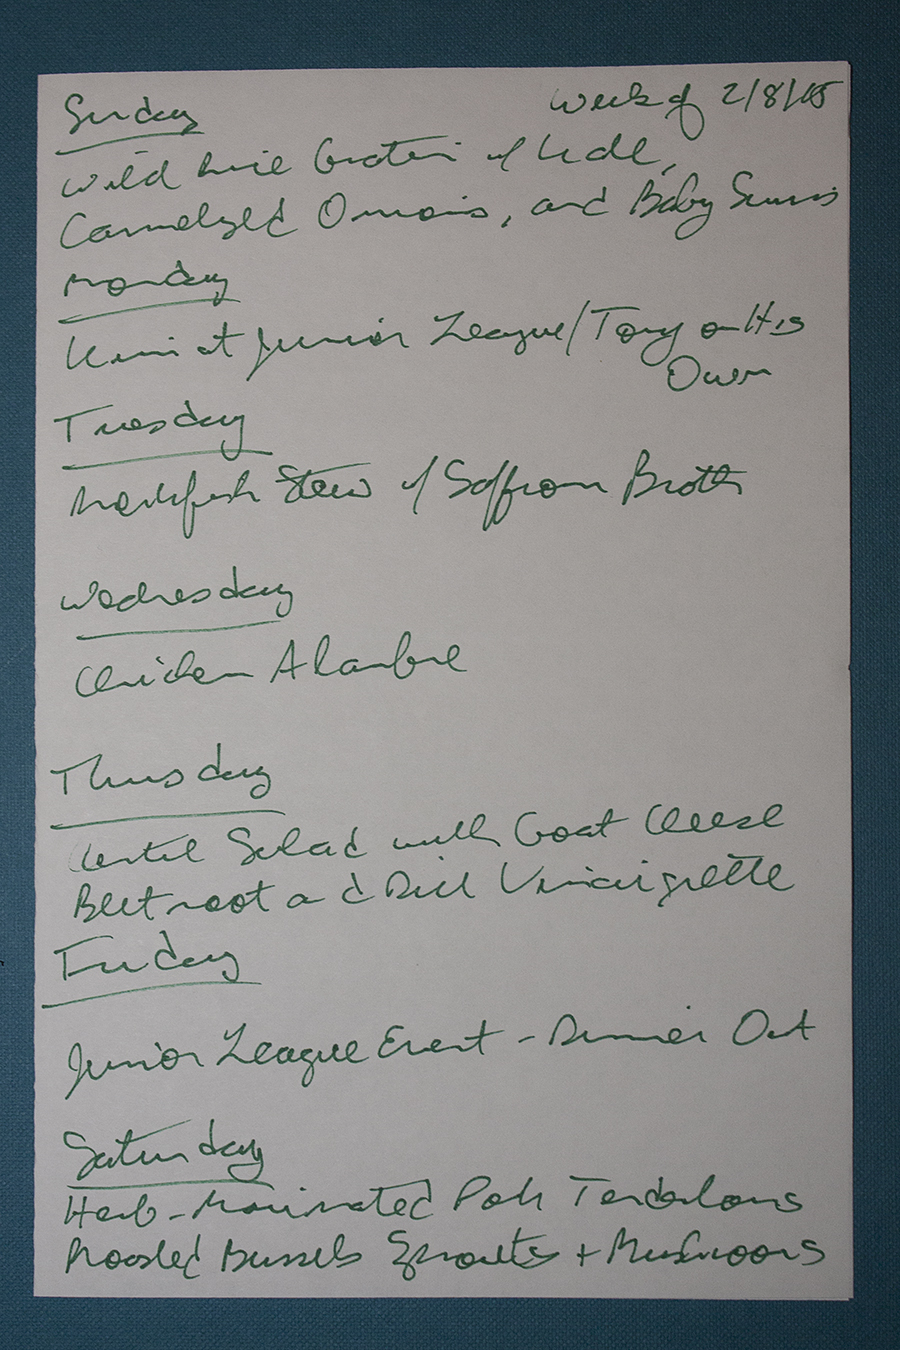 Sunday
Week of 2/8/15
Wild Rice Gratin w/ Kale,
Caramelized Onions, and Baby Swiss
Monday
Kim at Junior League/Tony on His
Own
Tuesday
Monkfish Stew w/ Saffron Broth
Wednesday
Chicken Alambre
Thursday
Lentil Salad with Goat Cheese
Beetroot and Dill Vinaigrette
Friday
Junior League Event - Dinner Out
Saturday
Herb-Marinated Pork Tenderloins
Roasted Brussels Sprouts + Mushrooms